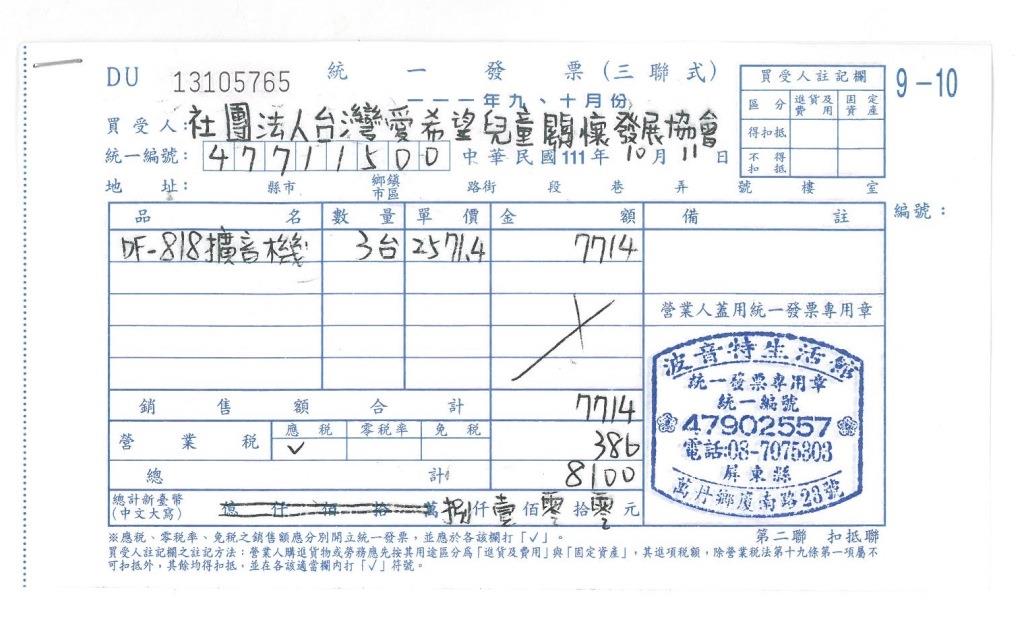 DU 13105765 統一發票(三聯式)
一一一年九、十月份
9-10
買受人註記欄
區分 進貨及費用 固定資產
得扣抵
不得扣抵
買受人:社團法人台灣愛希望兒童關懷發展協會
統一編號: 47711500 中華民國111年10月11日
地址: 縣市 鄉鎮市區 路街 段 巷 弄 號 樓 室
編號:
品名 數量 單價 金額 備註
DF-818擴音機 3台 2571.4 7714
營業人蓋用統一發票專用章
銷售額合計 7714
營業稅 應稅 零稅率 免稅 386
✓
總計 8100
總計新臺幣(中文大寫) 億仟佰拾萬捌仟壹佰零拾零元
波音特生活館
統一發票專用章
統一編號
47902557
電話:08-7075303
屏東縣
萬丹鄉廈南路23號
※應稅、零稅率、免稅之銷售額應分別開立統一發票,並應於各該欄打「✓」。
第二聯 扣抵聯
買受人註記欄之註記方法:營業人購進貨物或勞務應先按其用途區分為「進貨及費用」與「固定資產」,其進項稅額,除營業稅法第十九條第一項屬不
可扣抵外,其餘均得扣抵,並在各該適當欄內打「✓」符號。